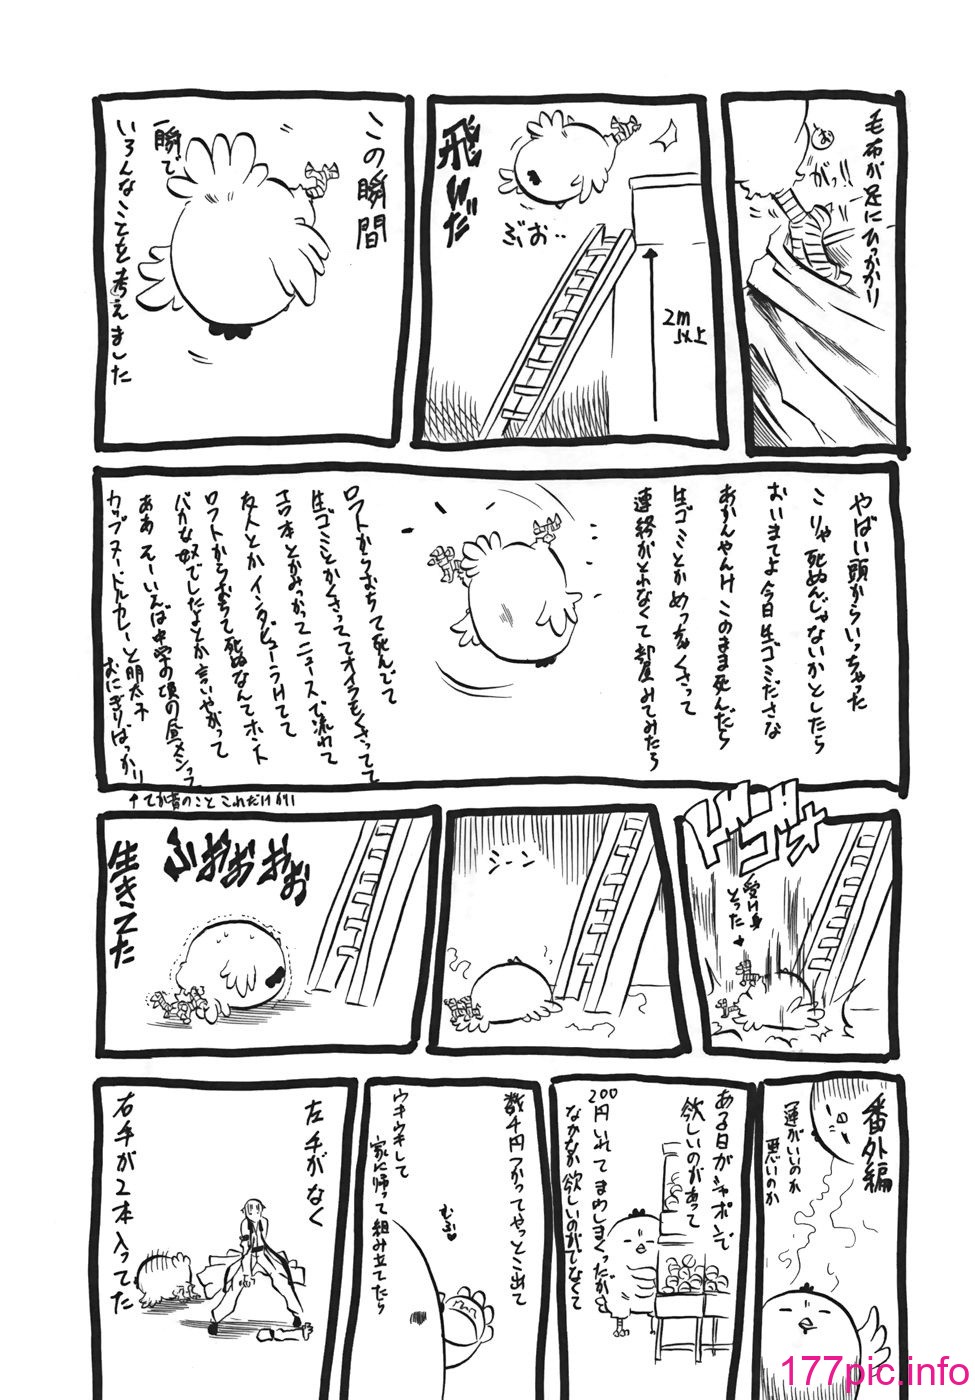 毛布が足にひっかかり
あ
がっ!!
飛んだ
ぶお..
2m
以上
この瞬間
一瞬で
いろんなことを考えました
やばい頭からいっちゃった
こりゃ死ぬんじゃないかとしたら
おいまてよ今日生ゴミださな
あかんやんけこのまま死んだら
生ゴミとかめっちゃくさって
連絡がとれなくて部屋みてみたら
ロフトからおちて死んでて
生ゴミとかくさっててオイラもくさってて
エロ本とかみつかってニュースで流れて
友人とかインタビューうけてて
ロフトからおちて死ぬなんてホント
バカな奴でしたよとか言いやがって
ああそーいえば中学の頃の昼メシって
カップヌードルカレーと明太子
おにぎりばっかり
↑てか昔のことこれだけかい
ドゴォ
受け身
とった
シーン
ふおおおお
生きてた
番外編
運がいいのか
悪いのか
ある日ガシャポンで
欲しいのがあって
200円いれてまわしまくったが
なかなか欲しいのがでなくて
数千円つかってやっとこ出て
むふ♥
ウキウキして
家に帰って組み立てたら
左手がなく
右手が2本入ってた
177pic.info